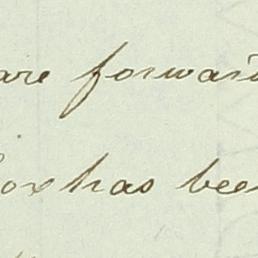 are forward
box has been